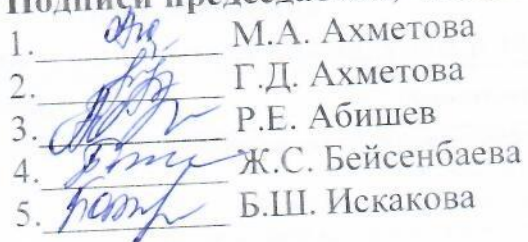 Подписи
1. М.А. Ахметова
2. Г.Д. Ахметова
3. Р.Е. Абишев
4. Ж.С. Бейсенбаева
5. Б.Ш. Искакова